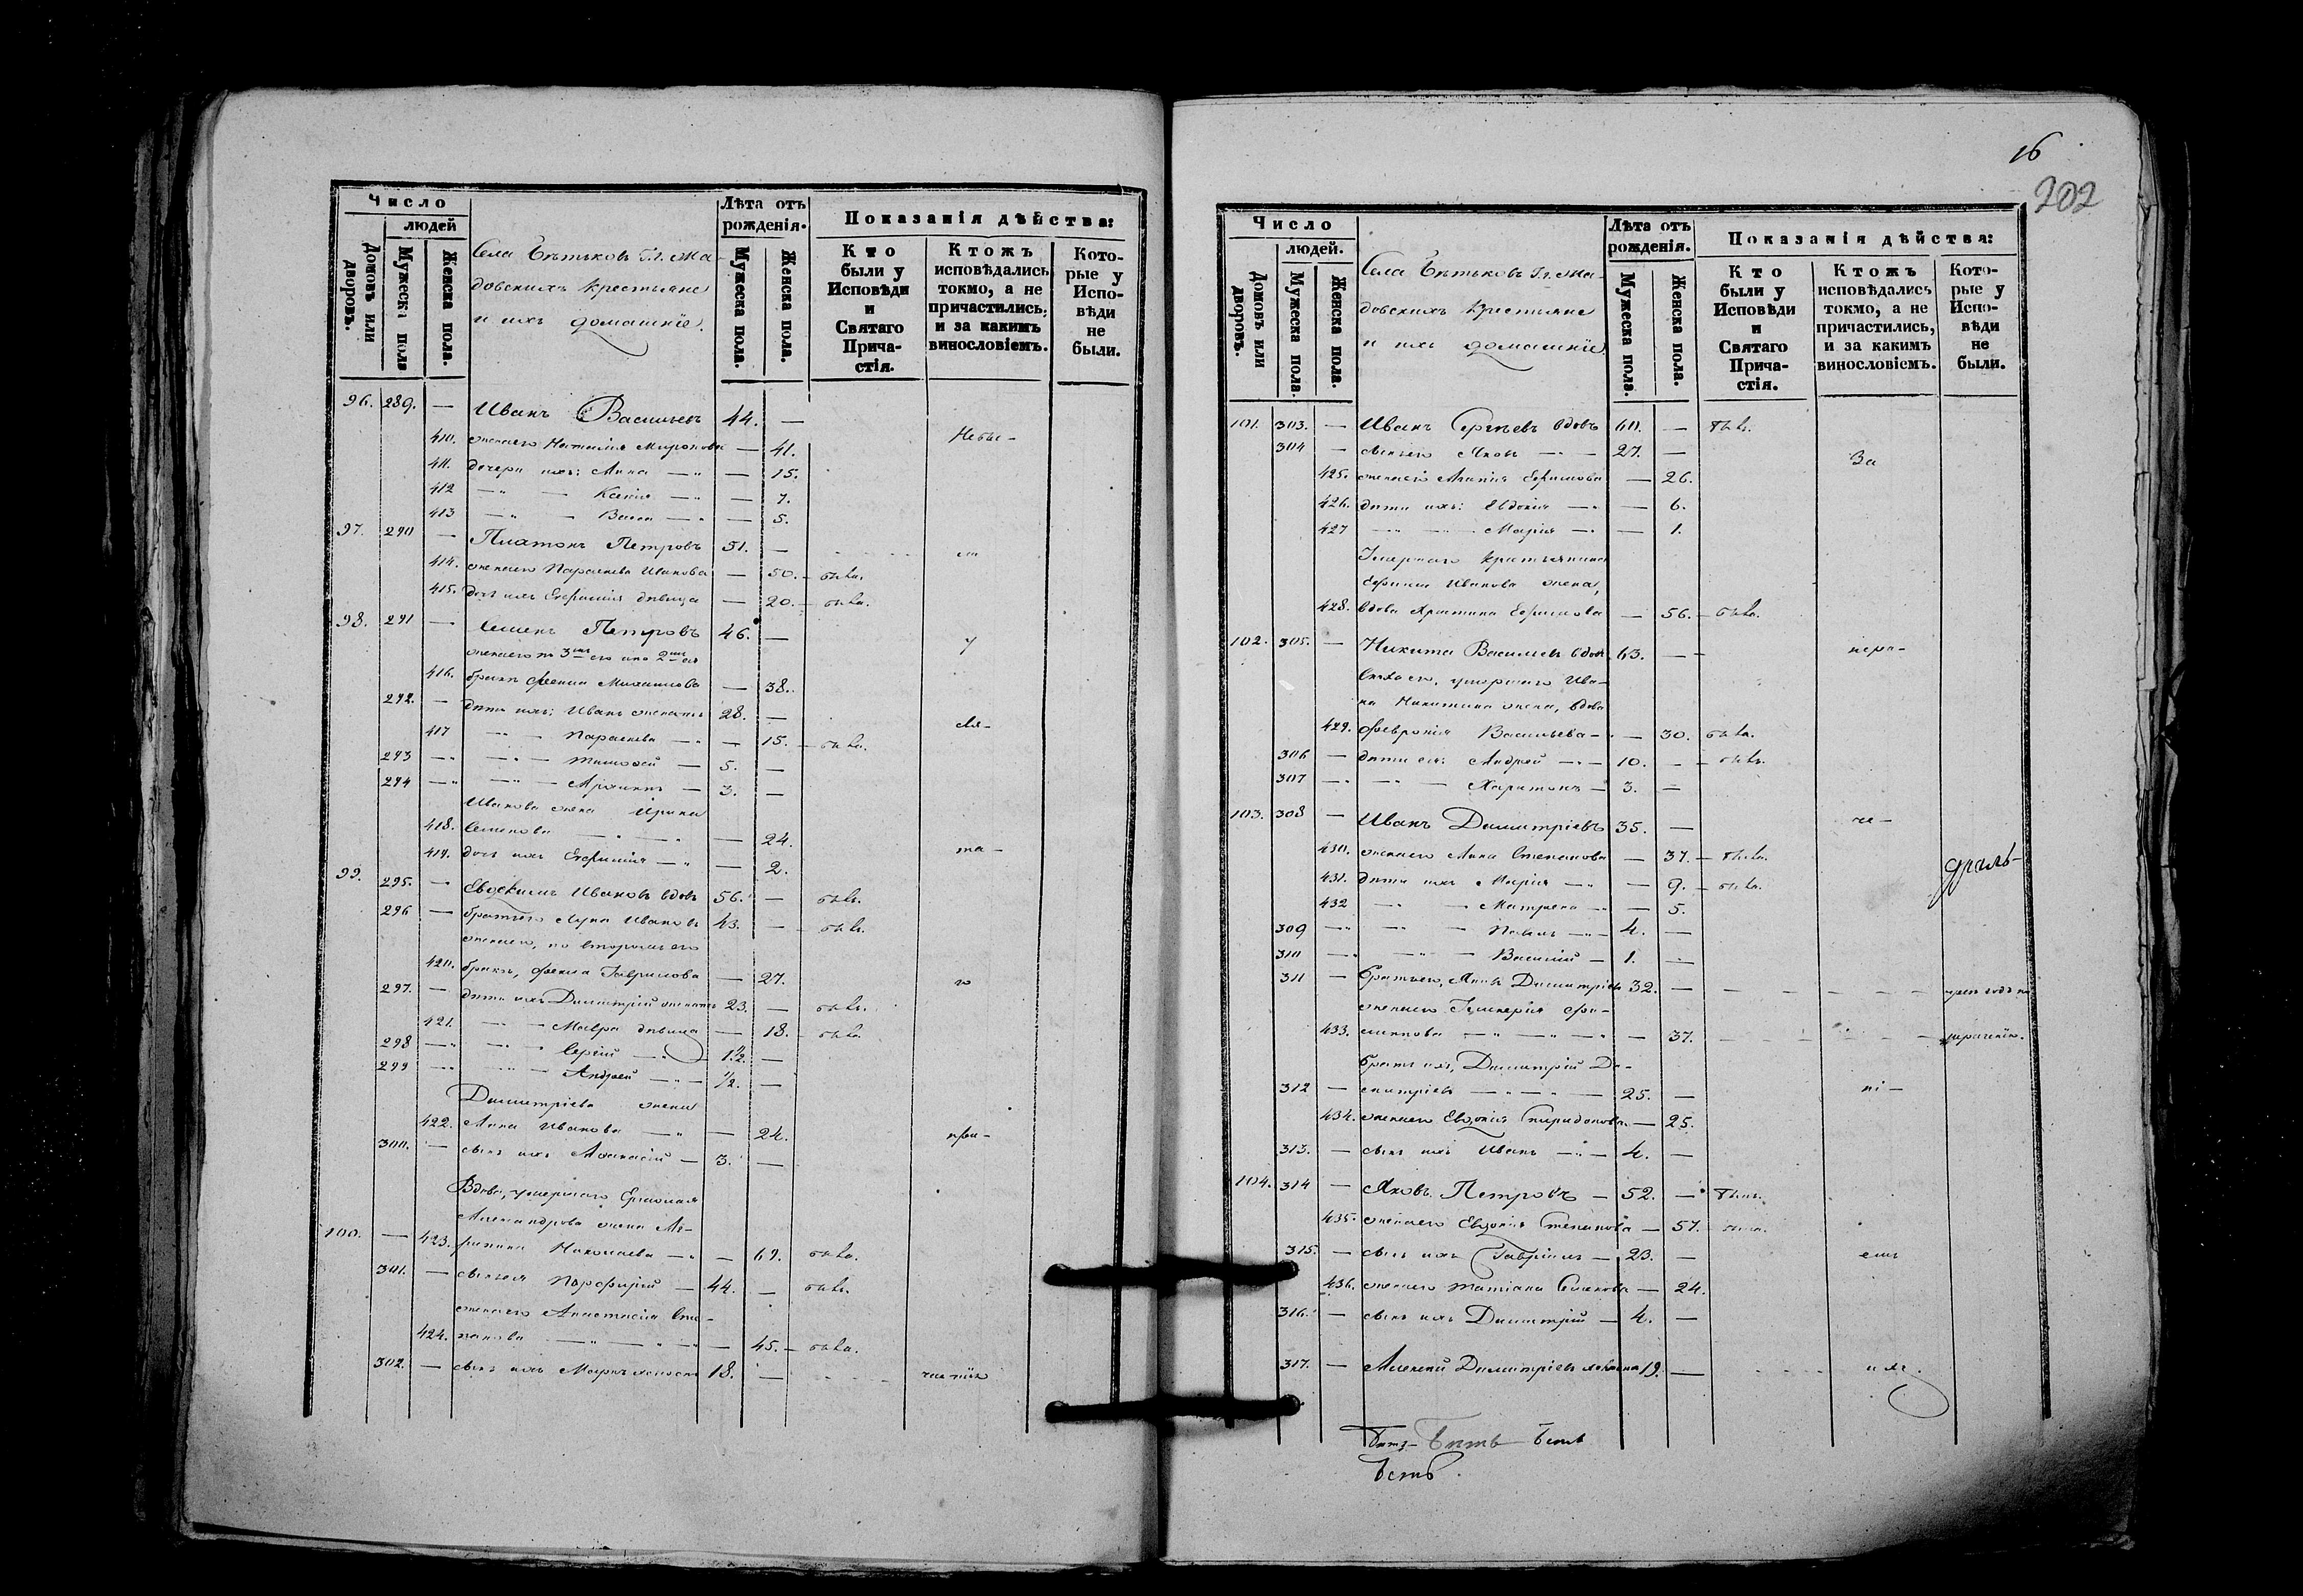 Число
людей
Домовъ или дворовъ.
Мужеска пола
Женска пола.
Села
довскихъ крестьяне
и ихъ домашніе.
Лѣта отъ рожденія.
Мужеска пола.
Женска пола.
Показанія дѣйства:
Кто были у Исповѣди и Святаго Прича-стія.
Ктожъ исповѣдались токмо, а не причастились, и за какимъ винословіемъ.
Кото-рые у Испо-вѣди не были.
96. 289. — Иванъ Васильевъ 44. —
410. жена его Наталия Миронова — 41. Не бы-
411. дочери ихъ: Анна — „ — 15.
412 — „ — Ксенія — „ — 7.
413 — „ — Васса — „ — 5.
97. 290 — Платонъ Петровъ 51. — ли
414. жена его Параскева Иванова — 50. — была.
415. дочь ихъ Евфимія дѣвица — 20. — была.
98. 291 — Симеонъ Петровъ 46. — у
жена его по 3му его и по 2му ея
416. браку Ѳекла Михаилова — 38.
292. — дѣти ихъ: Иванъ женатъ 28. — Свя-
417 — „ — Параскева — „ — 15. — была.
293 — „ — „ — Тимоѳей — 5. —
294 — „ — „ — 3. —
Иванова жена Ирина
418. Семенова — „ — „ — 24.
419. дочь ихъ Евфимія — „ — 2. та-
99. 295. — Евдокимъ Ивановъ вдовъ 56. — былъ.
296 — братъ его Лука Ивановъ 43. — — былъ.
жена его, по второму его
420. браку, Ѳекла Гаврилова — 27. го
297. — дѣти ихъ Димитрій женатъ 23. — былъ.
421. — „ — Мавра дѣвица — 18. — была
298 — „ — „ — Сергій — „ — 1½. —
299 — „ — „ — Андрей — „ — ½. —
Димитріева жена
422. Анна Иванова — „ — 24. при-
300. — сынъ ихъ Аѳанасій — 3. —
Вдова, умершаго
Александрова жена Ма-
100. — 423. рина Николаева — „ — 69. была.
301. — сынъ ея Порфирій — 44. — былъ.
жена его Анастасія Сте-
424. панова — „ — „ — 45. — была.
302. — сынъ ихъ Маркъ холостъ 18. — частія
16
202
Число
людей.
Домовъ или дворовъ.
Мужеска пола
Женска пола.
Села
довскихъ крестьяне
и ихъ домашніе.
Лѣта отъ рожденія.
Мужеска пола.
Женска пола.
Показанія дѣйства:
Кто были у Исповѣди и Святаго Прича-стія.
Ктожъ исповѣдались токмо, а не причастились, и за какимъ винословіемъ.
Кото-рые у Испо-вѣди не были.
101. 303. — Иванъ Сергѣевъ вдовъ 60. — былъ.
304 — сынъ его Яковъ — „ — 27. — За
425. жена его Ефимова — 26.
426. дѣти ихъ: Евдокія — „ — 6.
427 — „ — „ — Марія — „ — 1.
Умершаго крестьянина
Ефима Иванова жена,
428. вдова Христина Ефимова — 56. — была.
102. 305. — Никита Васильевъ вдовъ 63. — — нера-
Сноха его, умершаго Ива-
на Никитина жена, вдова
429. Февронія Васильева — „ — 30. была.
306 — дѣти ея: Андрей — „ — 10. — — былъ.
307 — „ — „ — Харитонъ — 3. —
103. 308 — Иванъ Димитріевъ 35. — че-
430. жена его Анна Степанова — 37. — была.
431. дѣти ихъ Марія — „ — 9. — была.
432 — „ — Матрена — „ — 5.
309 — „ — „ — Павелъ — „ — 4. —
310 — „ — „ — Василій — 1. —
311 — братъ его, Димитріевъ 32. —
жена его Гликерія Фи-
433. липпова — „ — „ — 37.
братъ ихъ, Димитрій Ди-
312 — митріевъ — „ — „ — 25. — ні-
434. жена его Евдокія Спиридонова — 25.
313. — сынъ ихъ Иванъ — „ — 4. —
104. 314 — Яковъ Петровъ — 52. — былъ.
435. жена его Евдокія Степанова — 57. — была.
315. — сынъ ихъ Гавріилъ — 23. — емъ
436. жена его Татіана Семенова — 24.
316. — сынъ ихъ Димитрій — 4. —
317. — Алексій Димитріевъ 19. — ихъ.